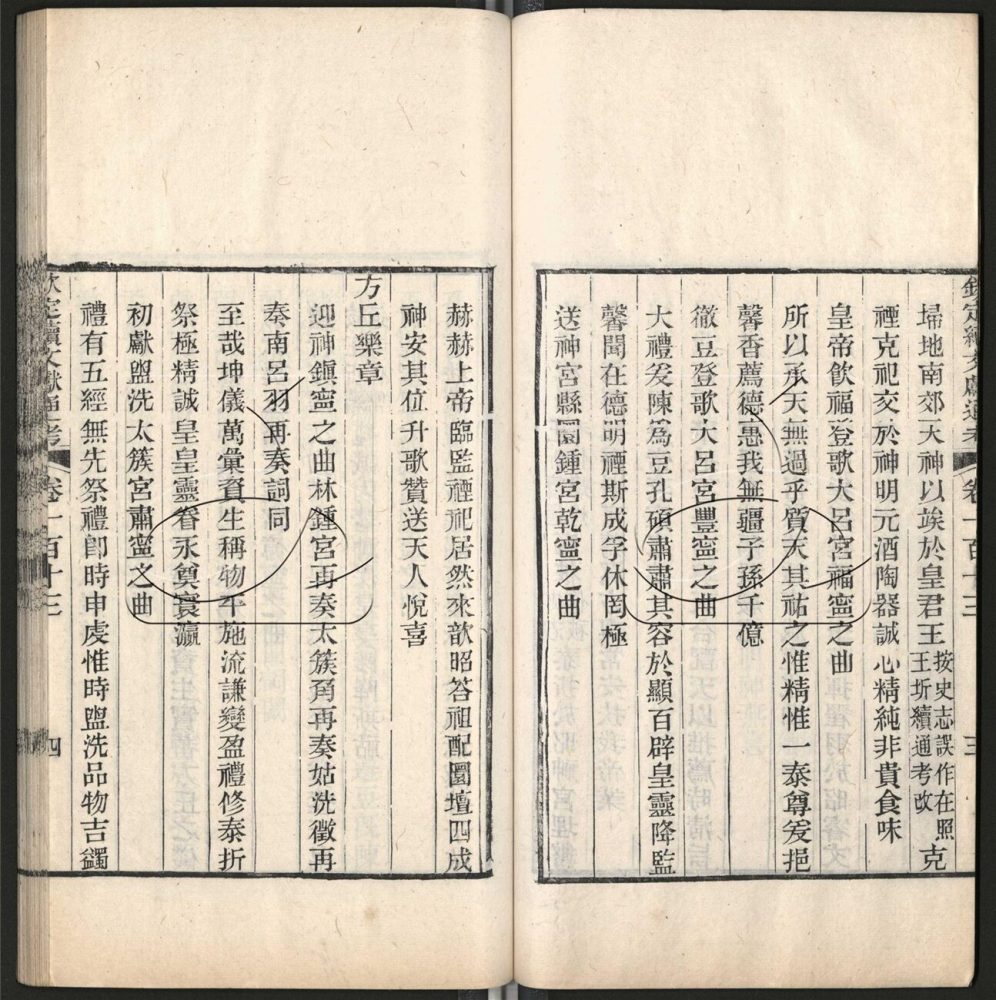 欽定續文獻通考 卷一百十三 三
埽地南郊天神以竢於皇君王按史志誤作在照王圻續通考改克
禋克祀交於神明元酒陶器誠心精純非貴食味
皇帝飮福登歌大呂宮福寧之曲
所以承天無過乎質天其祐之惟精惟一泰尊爰挹
馨香薦德惠我無疆子孫千億
徹豆登歌大呂宮豐寧之曲
大禮爰陳爲豆孔碩肅肅其容於顯百辟皇靈降監
馨聞在德明禋斯成孚休罔極
送神宮縣圜鍾宮乾寧之曲
赫赫上帝臨監禋祀居然來歆昭答祖配圜壇四成
神安其位升歌贊送天人悅喜
方丘樂章
迎神鎮寧之曲林鍾宮再奏太簇角再奏姑洗徵再
奏南呂羽再奏詞同
至哉坤儀萬彙資生稱物平施流謙變盈禮修泰折
祭極精誠皇皇靈眷永奠寰瀛
初獻盥洗太簇宮肅寧之曲
禮有五經無先祭禮卽時申虔惟時盥洗品物吉蠲
欽定續文獻通考 卷一百十三 四